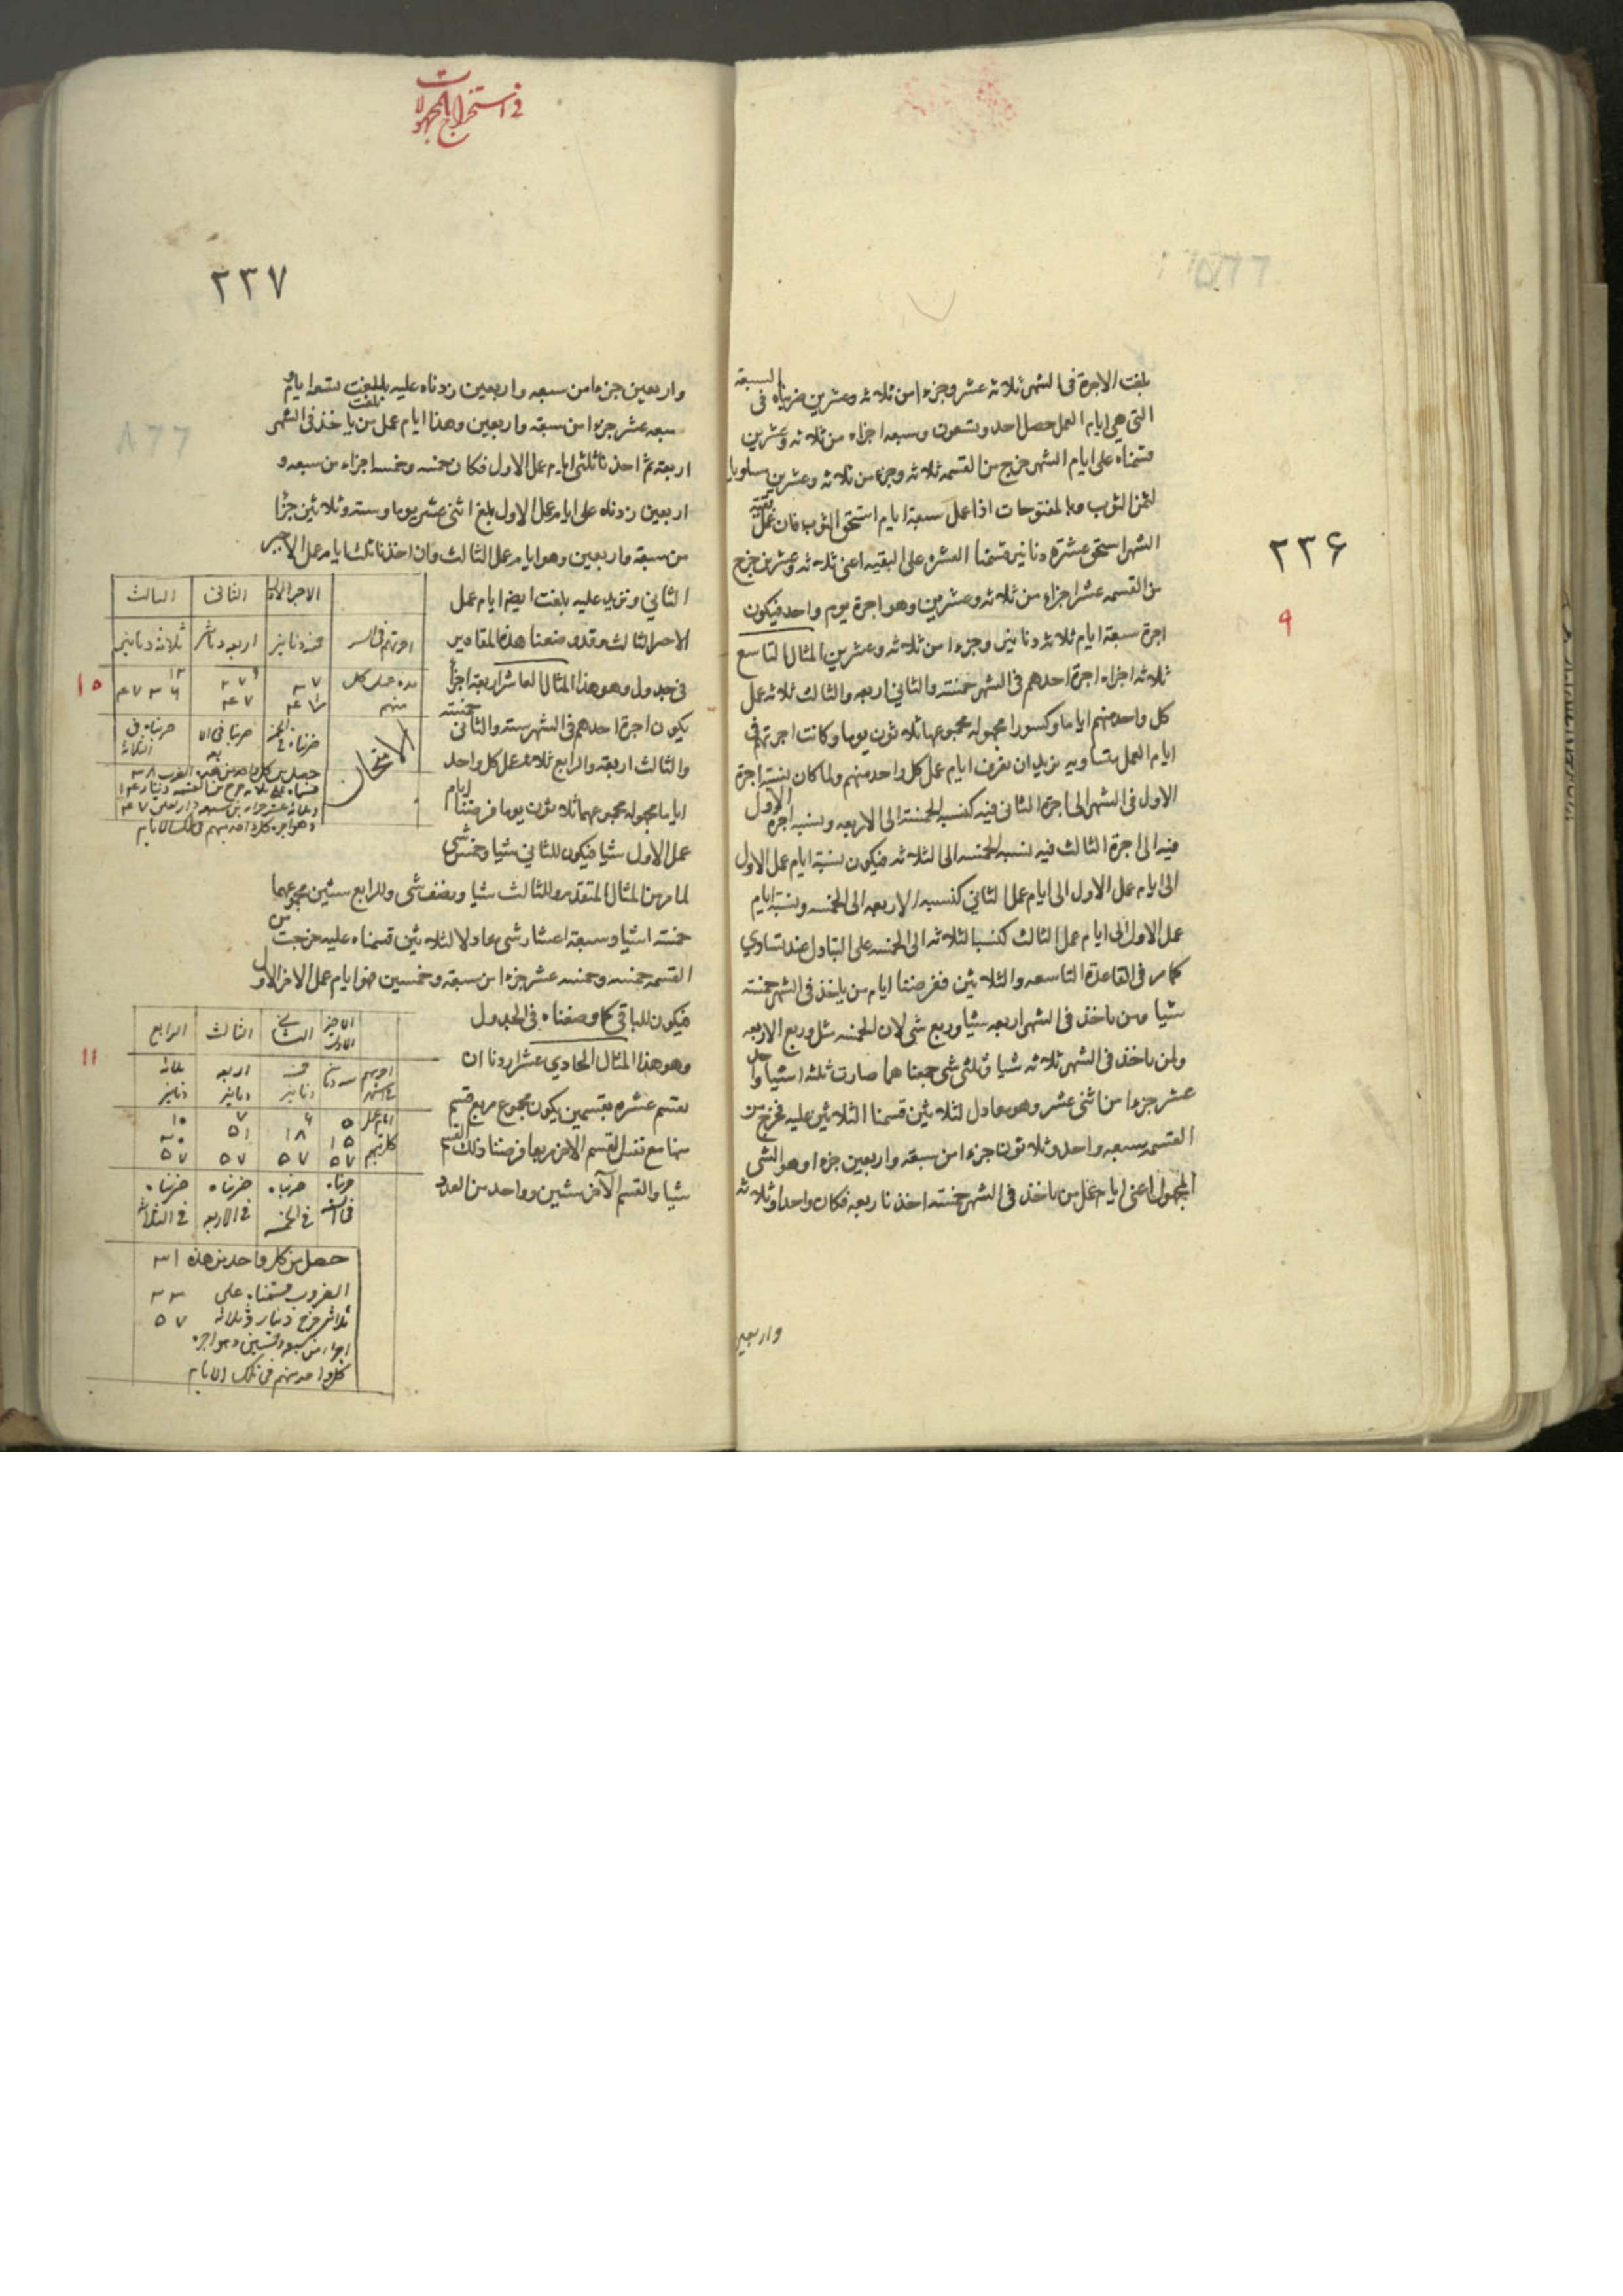 ٢٣۶
بلغت الاجرة فى الشهر ثلاثه عشر وجزءا من ثلاثه وعشرين ضربناه فى السبعة
التى هى ايام العمل حصل احد وتسعون وسبعه اجزاء من ثلاثه وعشرين
قسمناه على ايام الشهر خرج من القسمه ثلاثه وجزء من ثلاثه وعشرين
لثمن الثوب اذا عمل سبعة ايام استحق الثوب فان عمل بقية
الشهر استحق عشرة دنانير قسمنا العشره على البقيه اعنى ثلاثه وعشرين خرج
من القسمه عشر اجزاء من ثلاثه وعشرين وهو اجرة يوم واحد فيكون
اجرة سبعة ايام ثلاثه دنانير وجزءا من ثلاثه وعشرين المثال التاسع
٩
ثلاثه اجراء اجرة احدهم فى الشهر خمسة والثاني اربعه والثالث ثلاثه عمل
كل واحد منهم اياما وكسورا مجهوله مجموعها ثلاثون يوما وكانت اجرتهم فى
ايام العمل متساويه نريد ان نعرف ايام عمل كل واحد منهم ولما كان نسبة اجرة
الاول فى الشهر الى اجرة الثانى فيه كنسبة الخمسة الى الاربعه ونسبه اجرة الاول
فيه الى اجرة الثالث فيه نسبه الخمسه الى الثلاثه فيكون نسبة ايام عمل الاول
الى ايام عمل الاول الى ايام عمل الثاني كنسبه الاربعه الى الخمسه ونسبة ايام
عمل الاول الى ايام عمل الثالث كنسبة الثلاثه الى الخمسه على التبادل عند تساوي
كما مر فى القاعدة التاسعه والثلاثين ففرضنا ايام من ياخذ فى الشهر خمسة
شيا ومن ياخذ فى الشهر اربعه شيا وربع شى لان الخمسه مثل وربع الاربعه
ولمن ياخذ فى الشهر ثلاثه شيا وثلثى شى جمعناهما صارت ثلثه اشيا واحد
عشر جزءا من اثنى عشر وهو معادل لثلاثين قسمنا الثلاثين عليه فخرج من
القسمه سبعه واحد وثلاثون جزءا من سبعة واربعين جزءا وهو الشى
المجهول اعنى ايام عمل من ياخذ فى الشهر خمسة اخذنا ربعه فكان واحدا وثلاثه
واربعين
فى استخراج المجهولات
٢٣٧
واربعين جزءا من سبعه واربعين زدناه عليه بلغت تسعه ايام
سبعه عشر جزءا من سبعة واربعين وهذا ايام عمل من ياخذ فى الشهر
اربعة ثم اخذنا ثلثى ايام عمل الاول فكان خمسه وخمسة اجزاء من سبعه و
اربعين زدناه على ايام عمل الاول بلغ اثنى عشر يوما وستة وثلاثين جزأ
من سبعة واربعين وهو ايام عمل الثالث وان اخذنا ثلث ايام عمل الاجير
الثاني ونزيد عليه بلغت ايضا ايام عمل
الاجير الثالث وقد وضعنا هذه المقادير
فى جدول وهو هذا المثال العاشر اربعة اجرأ
١٠
يكون اجرة احدهم فى الشهر ستة والثانى خمسته
والثالث اربعة والرابع ثلاثه عمل كل واحد
اياما مجهوله مجموعها ثلاثون يوما فرضنا ايام
عمل الاول شيا فيكون للثاني شيا وخمس شى
لما مر من المثال المتقدم وللثالث شيا ونصف شى وللرابع شيئين مجموعها
خمسة اشيا وسبعة اعشار شى معادلا لثلاثين قسمناه عليه خرجت من
القسمه خمسه وخمسه عشر جزءا من سبعة وخمسين فهو ايام عمل الاجر الاول
فيكون للباقى كما وضعناه فى الجدول
وهو هذا المثال الحادي عشر اردنا ان
١١
نقسم عشره بقسمين يكون مجموع مربع قسم
منها مع نفس القسم الاخر مربعا فرضنا ذلك القسم
شيا والقسم الآخر شيئين وواحد من العدد
الاجير الاول الثانى الثالث
اجرتهم فى الشهر خمسه دنانير اربعه دنانير ثلاثه دنانير
مده عمل كل منهم
الامتحان ضربناه فى الخمسه ضربناه فى الاربعه ضربناه فى الثلاثه
وهو اجرة كل واحد منهم فى تلك الايام
الاجير الاول الثانى الثالث الرابع
اجرتهم فى الشهر سته دنانير خمسه دنانير اربعه دنانير ثلاثه دنانير
٥ ۶ ٧ ١٠
١٥ ١٨ ٥١ ٣٠
٥٧ ٥٧ ٥٧ ٥٧
ضربناه فى الستة ضربناه فى الخمسه ضربناه فى الاربعه ضربناه فى الثلاثه
حصل من كل واحد من هذه
الضروب قسمناه على
ثلاثين خرج دينار وثلاثه
اجزاء من سبعه وخمسين وهو اجره
كل واحد منهم فى تلك الايام